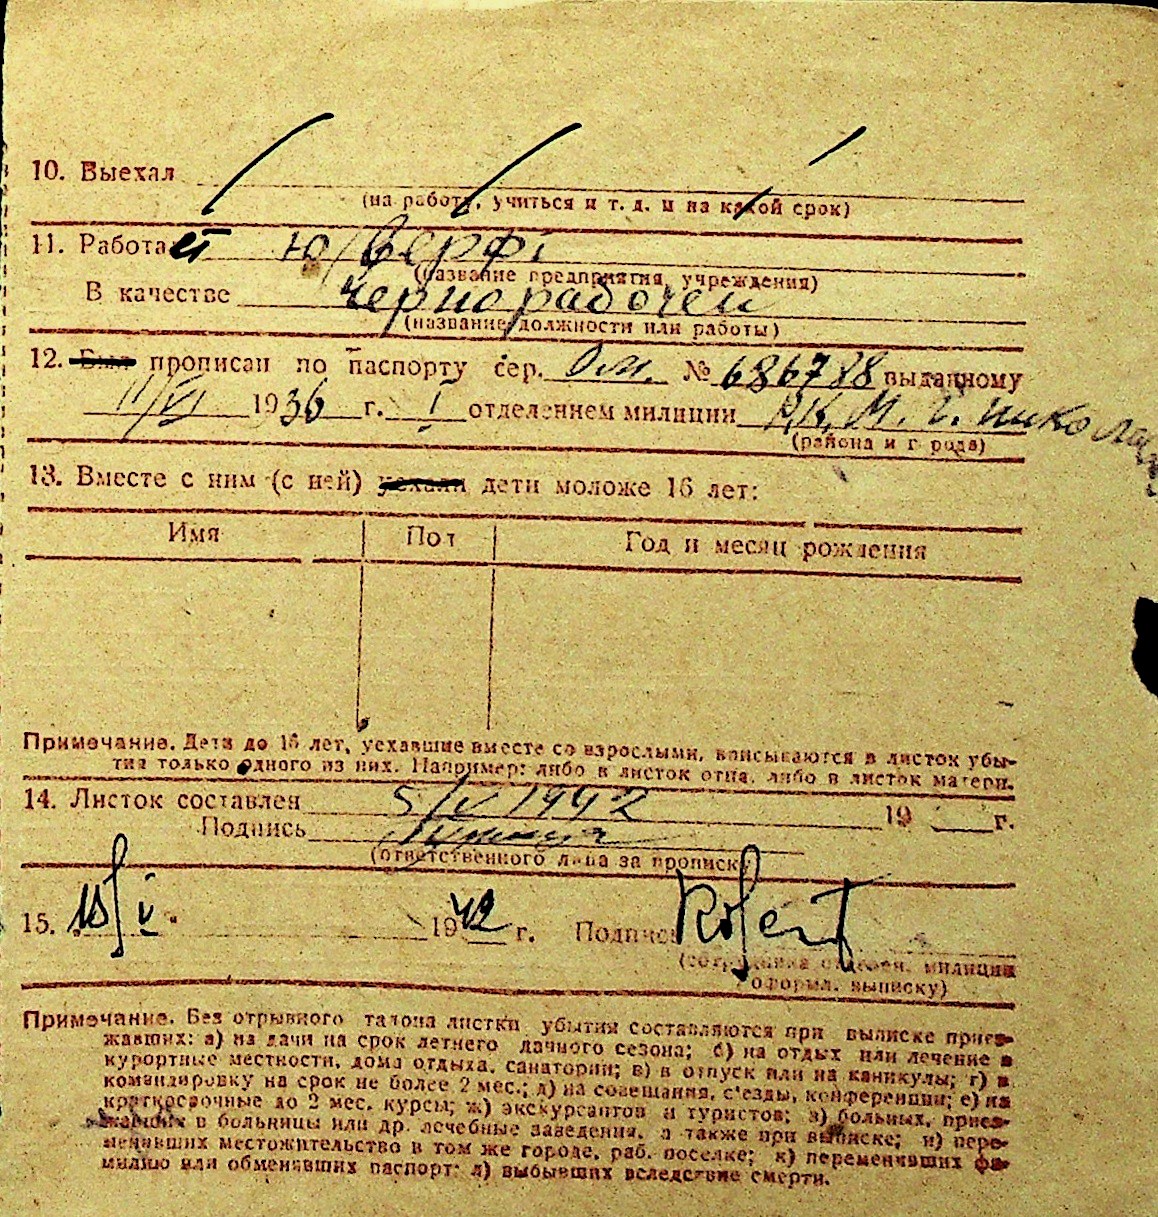 10. Выехал
(на работу, учиться и т. д. и на какой срок)
11. Работает Ю/Верфі
(название предприятия, учреждения)
В качестве чернорабочей
(название должности или работы)
12. Был прописан по паспорту сер. О.М. № 686788 выданному
11/VI 1936 г. I отделением милиции Р.К.М. г. Никола
(района и города)
13. Вместе с ним (с ней) уехали дети моложе 16 лет:
Имя Пол Год и месяц рождения
Примечание. Дети до 16 лет, уехавшие вместе со взрослыми, вписываются в листок убы-
тия только одного из них. Например: либо в листок отца, либо в листок матери.
14. Листок составлен 5/V 1942 19 г.
Подпись
(ответственного лица за прописку
15. „18/V" 1942 г. Подпись
(сотрудника отделен. милиции
оформл. выписку)
Примечание. Без отрывного талона листки убытия составляются при выписке приез-
жавших: а) на дачи на срок летнего дачного сезона; б) на отдых или лечение в
курортные местности, дома отдыха, санатории; в) в отпуск или на каникулы; г) в
командировку на срок не более 2 мес.; д) на совещания, с'езды, конференции; е) на
краткосрочные до 2 мес. курсы; ж) экскурсантов и туристов; з) больных, приез-
жавших в больницы или др. лечебные заведения, а также при выписке; и) пере-
менивших местожительство в том же городе, раб. поселке; к) переменивших фа-
милию или обменявших паспорт; л) выбывших вследствие смерти.